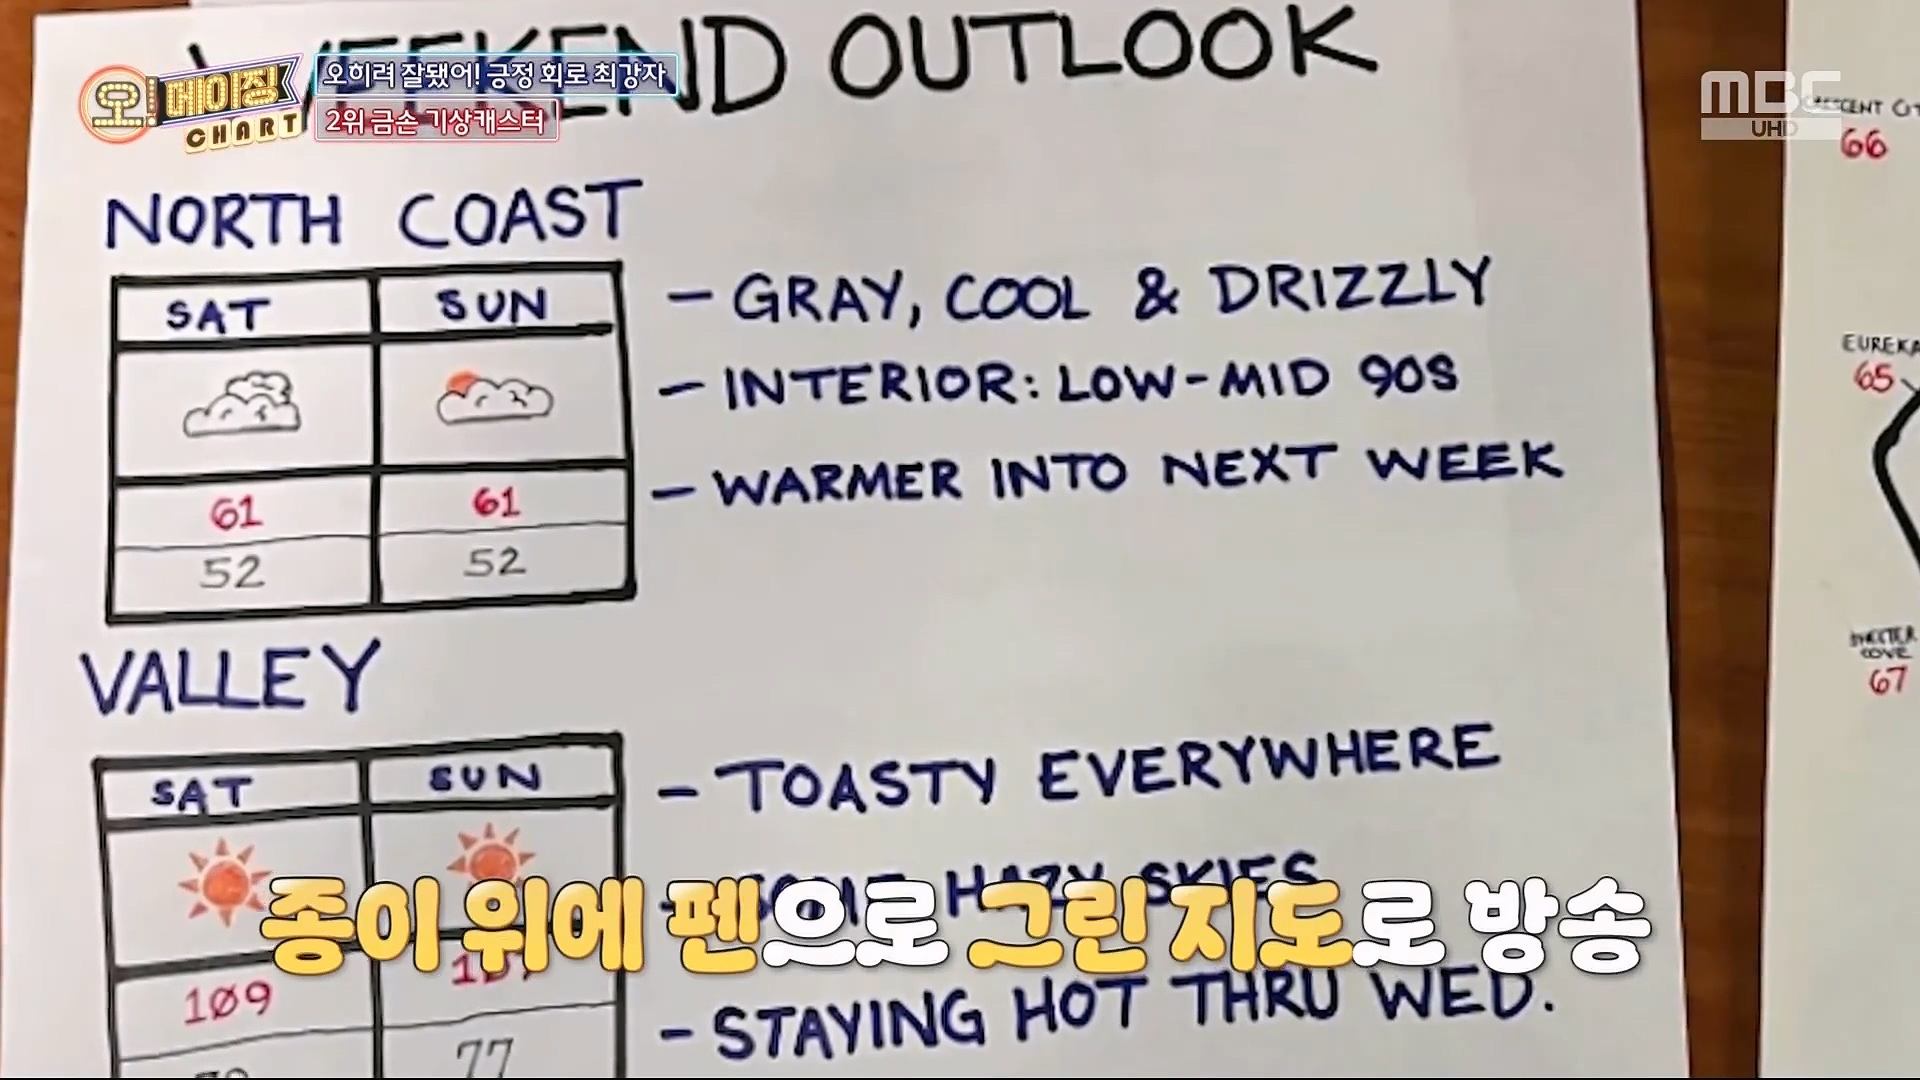 WEEKEND OUTLOOK
오! 메이징
CHART
오히려 잘됐어! 긍정 회로 최강자
2위 금손 기상캐스터
MBC
UHD
NORTH COAST
SAT SUN
61 61
52 52
- GRAY, COOL & DRIZZLY
- INTERIOR: LOW-MID 90S
- WARMER INTO NEXT WEEK
VALLEY
SAT SUN
109
77
- TOASTY EVERYWHERE
HAZY SKIES
- STAYING HOT THRU WED.
종이 위에 펜으로 그린 지도로 방송
66
EUREKA
65
COVE
67